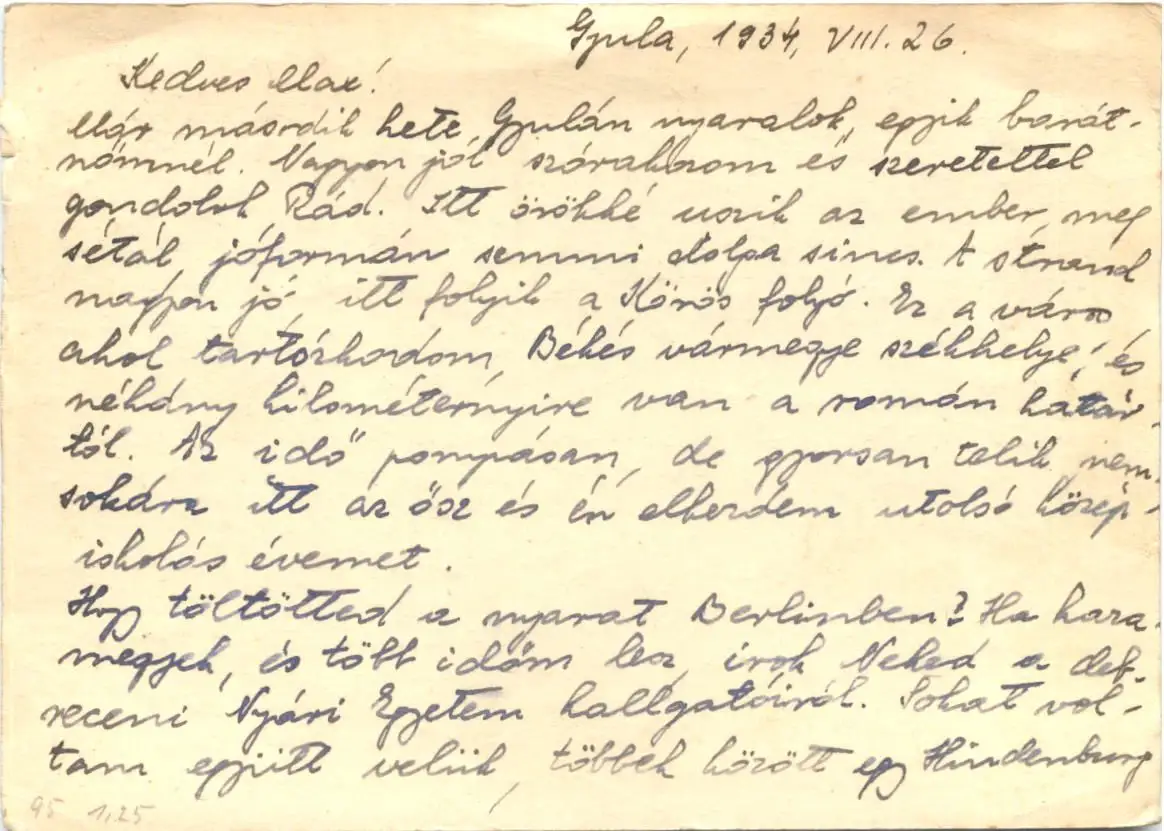 Gyula, 1934, VIII. 26.
Kedves Max!
Már második hete, Gyulán nyaralok, egyik barát-
nőmnél. Nagyon jól szórakozom és szeretettel
gondolok Rád. Itt örökké uszik az ember, meg
sétál, jóformán semmi dolga sincs. A strand
nagyon jó, itt folyik a Körös folyó. Ez a város
ahol tartózkodom, Békés vármegye székhelye, és
néhány kilométernyire van a román határ-
tól. Az idő pompásan, de gyorsan telik, nem-
sokára itt az ősz és én elkezdem utolsó közép-
iskolás évemet.
Hogy töltötted a nyarat Berlinben? Ha haza-
megyek, és több időm lesz, irok Neked a deb-
receni Nyári Egyetem hallgatóiról. Sokat vol-
tam együtt velük, többek között egy Hindenburg
95 1,25